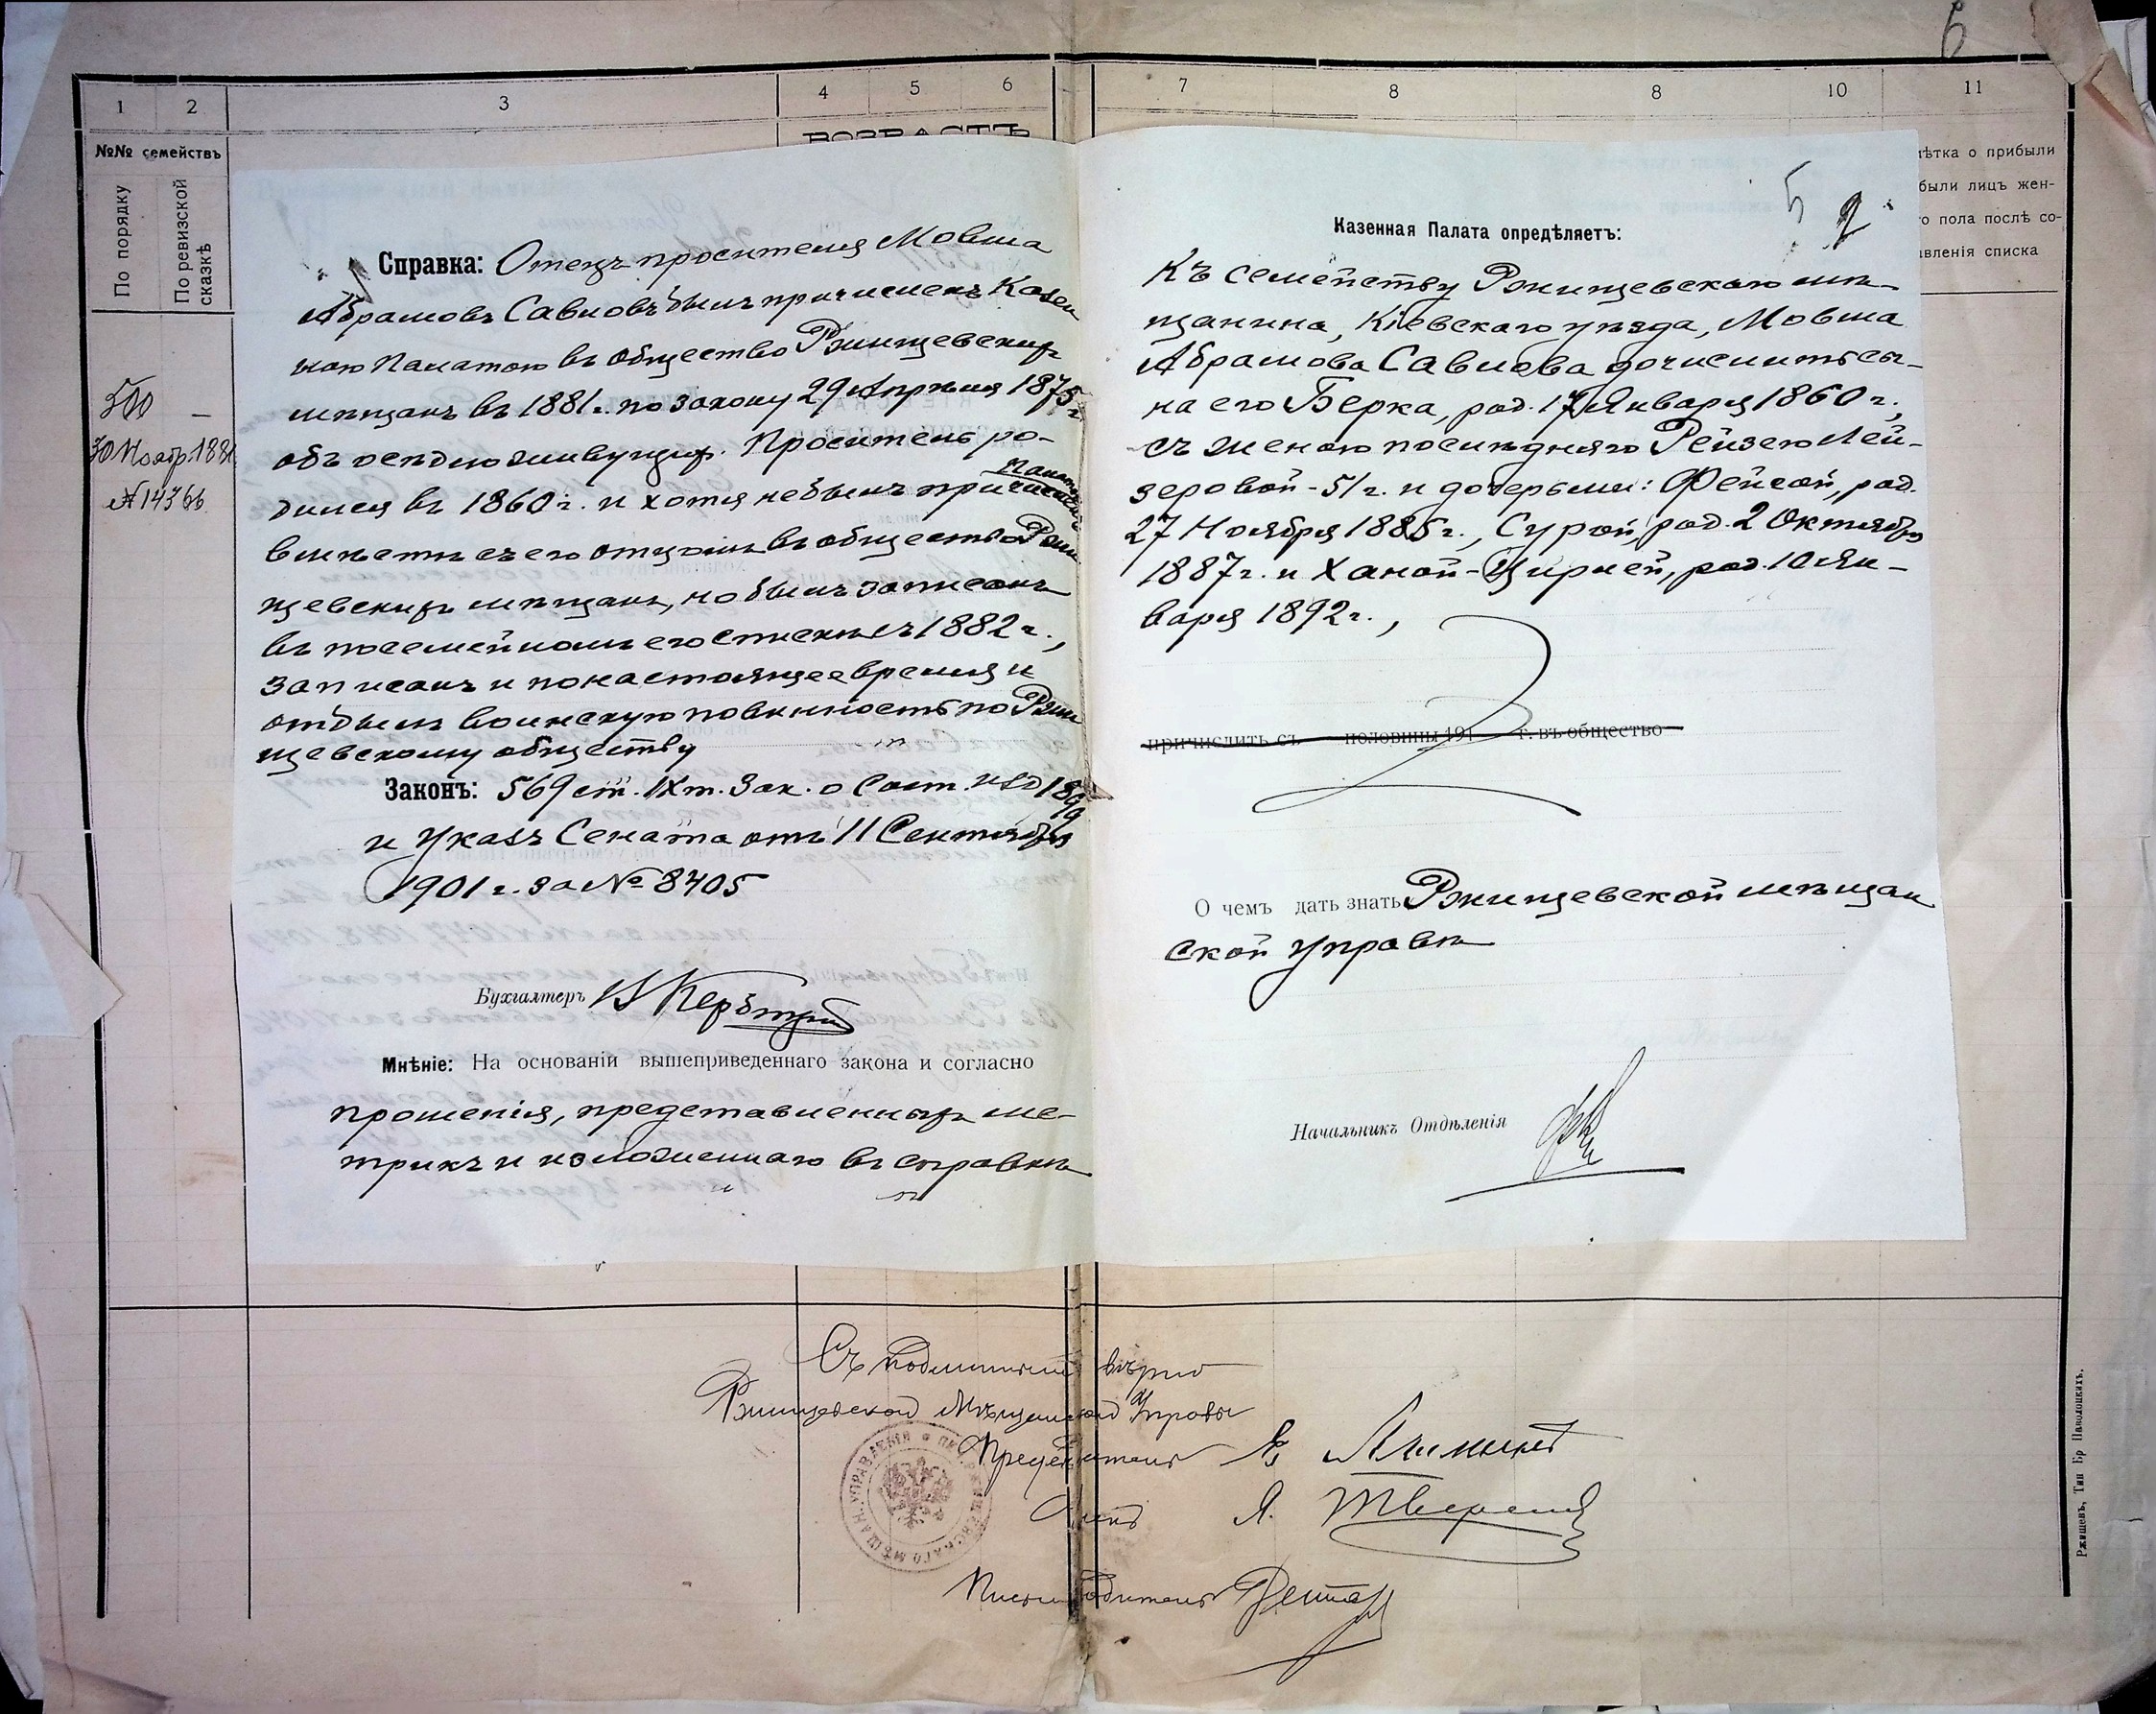 6
1 2 3 4 5 6 7 8 8 10 11
ВОЗРАСТЪ
№№ семействъ
По порядку
По ревизской сказкѣ
ѣтка о прибыли
были лицъ жен-
о пола послѣ со-
авленія списка
500 —
30 Ноябр. 1881
№ 14366
Справка: Отецъ просителя Мовша
Абрамовъ Савловъ былъ причисленъ Казен
ною Палатою въ общество Ржищевскихъ
мѣщанъ въ 1881 г. по закону 29 Апрѣля 1875 г
объ осѣдложивущихъ. Проситель ро-
дился въ 1860 г. и хотя не былъ причисленъ Палатою
вмѣстѣ съ его отцомъ въ общество Ржи
щевскихъ мѣщанъ, но былъ записанъ
въ посемейномъ его спискѣ съ 1882 г.,
записанъ и по настоящее время и
отбылъ воинскую повинность по Ржи
щевскому обществу
Законъ: 569 ст. IX т. Зак. о Сост. изд 1899
и Указъ Сената отъ 11 Сентября
1901 г. за № 8405
Бухгалтеръ
Мнѣніе: На основаніи вышеприведеннаго закона и согласно
прошенія, представленныхъ ме-
трикъ и изложеннаго въ справкѣ
5 2
Казенная Палата опредѣляетъ:
Къ семейству Ржищевскаго мѣ-
щанина, Кіевскаго уѣзда, Мовша
Абрамова Савлова дочислить сы-
на его Берка, род. 17 Января 1860 г.,
съ женою послѣдняго Рейзею Лей-
зеровой - 51 г. и дочерьми: Фейгой, род.
27 Ноября 1885 г., Сурой, род. 2 Октября
1887 г. и Ханой-Цирлей, род. 10 Ян-
варя 1892 г.,
причислить съ половины 191 г. въ общество
О чемъ дать знать Ржищевской мѣщан
ской управѣ
Начальникъ Отдѣленія
Съ подлиннымъ вѣрно
Ржищевской Мѣщанской Управы
Предсѣдатель
Членъ Я.
Письмоводитель
Ржищевъ, Тип Бр Паволоцкихъ.